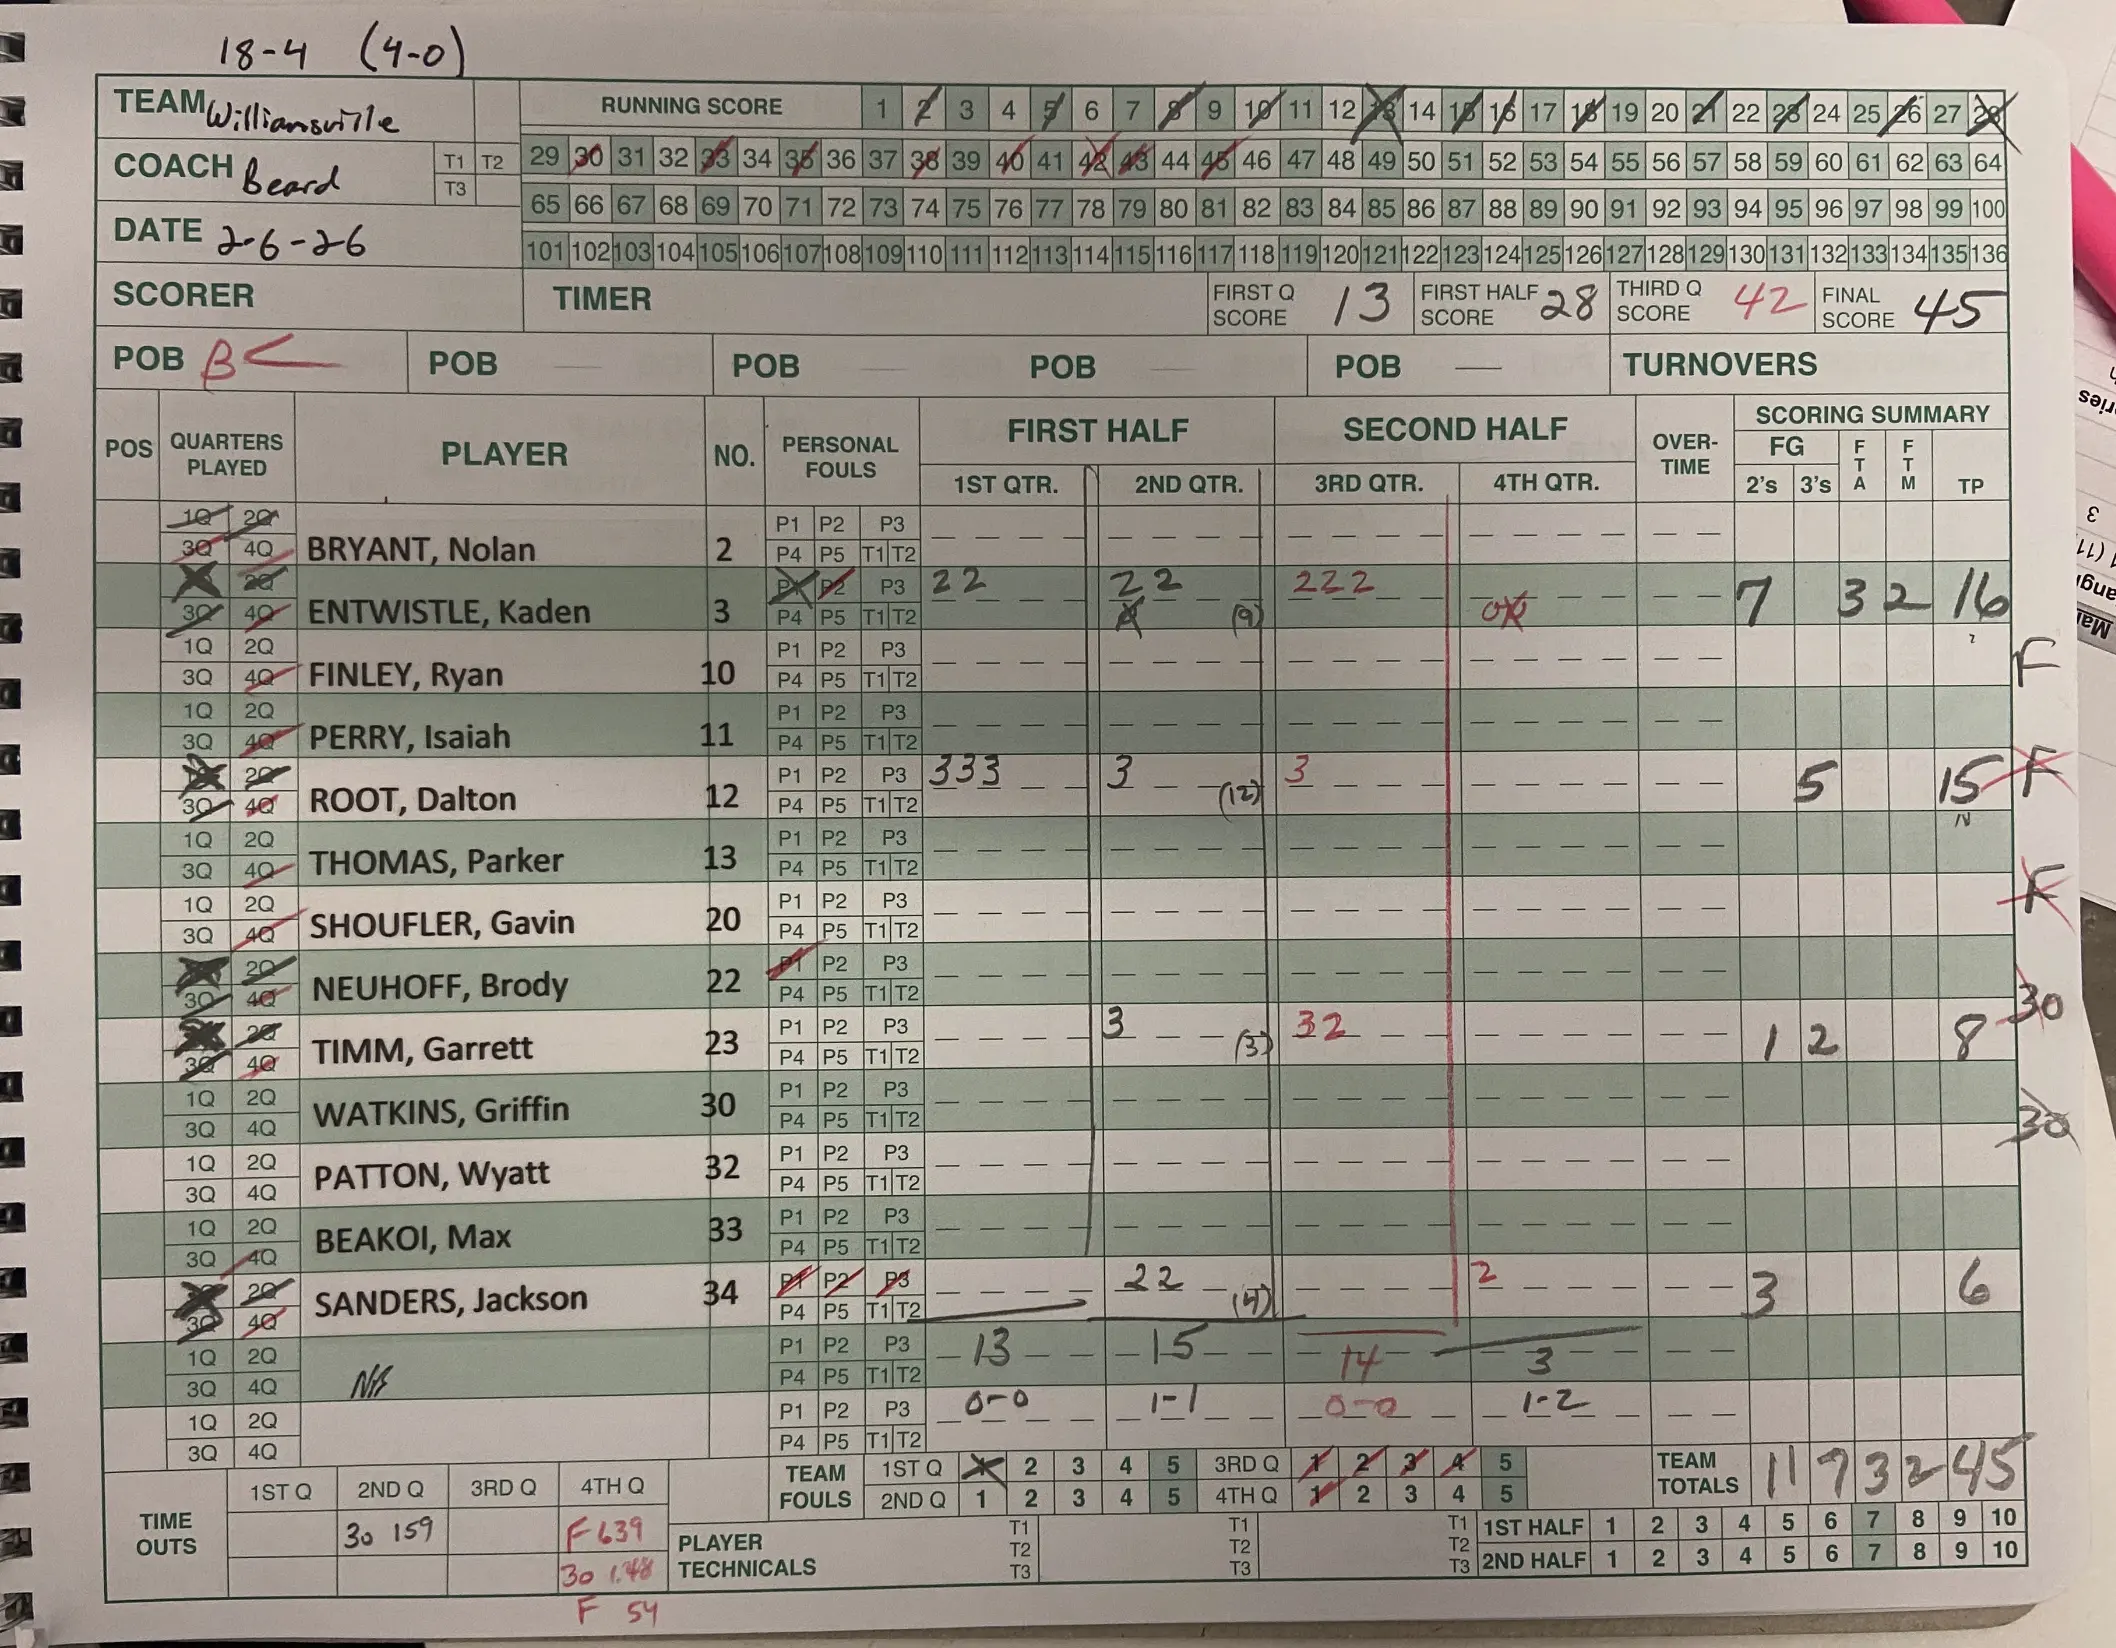 18-4 (4-0)
TEAM Williamsville
RUNNING SCORE 1 2 3 4 5 6 7 8 9 10 11 12 13 14 15 16 17 18 19 20 21 22 23 24 25 26 27 28
COACH Beard T1 T2 T3
29 30 31 32 33 34 35 36 37 38 39 40 41 42 43 44 45 46 47 48 49 50 51 52 53 54 55 56 57 58 59 60 61 62 63 64
65 66 67 68 69 70 71 72 73 74 75 76 77 78 79 80 81 82 83 84 85 86 87 88 89 90 91 92 93 94 95 96 97 98 99 100
DATE 2-6-26
101 102 103 104 105 106 107 108 109 110 111 112 113 114 115 116 117 118 119 120 121 122 123 124 125 126 127 128 129 130 131 132 133 134 135 136
SCORER TIMER FIRST Q SCORE 13 FIRST HALF SCORE 28 THIRD Q SCORE 42 FINAL SCORE 45
POB B POB POB POB POB TURNOVERS
POS QUARTERS PLAYED PLAYER NO. PERSONAL FOULS FIRST HALF SECOND HALF OVER-TIME SCORING SUMMARY
1ST QTR. 2ND QTR. 3RD QTR. 4TH QTR. FG 2's 3's FTA FTM TP
1Q 2Q P1 P2 P3
3Q 4Q BRYANT, Nolan 2 P4 P5 T1 T2
2Q P1 P2 P3 22 22 222
3Q 4Q ENTWISTLE, Kaden 3 P4 P5 T1 T2 (9) 7 3 2 16
1Q 2Q P1 P2 P3 F
3Q 4Q FINLEY, Ryan 10 P4 P5 T1 T2
1Q 2Q P1 P2 P3
3Q 4Q PERRY, Isaiah 11 P4 P5 T1 T2
2Q P1 P2 P3 333 3 3 F
3Q 4Q ROOT, Dalton 12 P4 P5 T1 T2 (12) 5 15
1Q 2Q P1 P2 P3
3Q 4Q THOMAS, Parker 13 P4 P5 T1 T2
1Q 2Q P1 P2 P3 F
3Q 4Q SHOUFLER, Gavin 20 P4 P5 T1 T2
2Q P1 P2 P3
3Q 4Q NEUHOFF, Brody 22 P4 P5 T1 T2 30
2Q P1 P2 P3 3 32
3Q 4Q TIMM, Garrett 23 P4 P5 T1 T2 (3) 1 2 8
1Q 2Q P1 P2 P3
3Q 4Q WATKINS, Griffin 30 P4 P5 T1 T2 30
1Q 2Q P1 P2 P3
3Q 4Q PATTON, Wyatt 32 P4 P5 T1 T2
1Q 2Q P1 P2 P3
3Q 4Q BEAKOI, Max 33 P4 P5 T1 T2
2Q P1 P2 P3 22 2
3Q 4Q SANDERS, Jackson 34 P4 P5 T1 T2 (4) 3 6
1Q 2Q P1 P2 P3 13 15 14 3
3Q 4Q P4 P5 T1 T2
1Q 2Q P1 P2 P3 0-0 1-1 0-0 1-2
3Q 4Q P4 P5 T1 T2
TIME OUTS 1ST Q 2ND Q 3RD Q 4TH Q
TEAM FOULS 1ST Q 1 2 3 4 5 3RD Q 1 2 3 4 5 TEAM TOTALS 11 7 3 2 45
2ND Q 1 2 3 4 5 4TH Q 1 2 3 4 5
30 159 F 639
30 1:48
F 54
PLAYER TECHNICALS T1 T2 T3 T1 T2 T3 T1 T2 T3
1ST HALF 1 2 3 4 5 6 7 8 9 10
2ND HALF 1 2 3 4 5 6 7 8 9 10